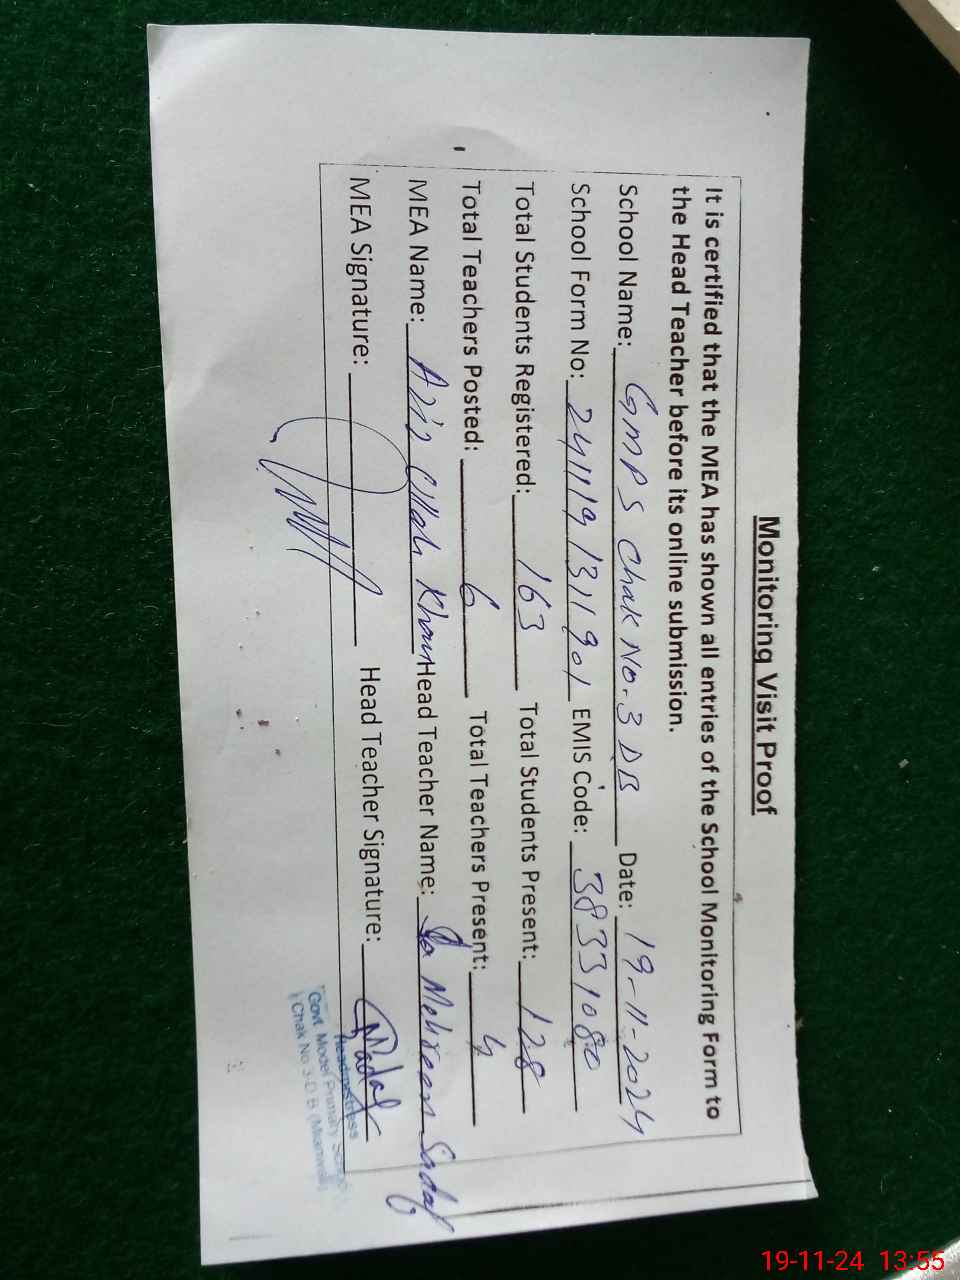 Monitoring Visit Proof
It is certified that the MEA has shown all entries of the School Monitoring Form to
the Head Teacher before its online submission.
School Name: GMPS Chak No. 3 DB Date: 19-11-2024
School Form No: 241119 1311 901 EMIS Code: 38331080
Total Students Registered: 163 Total Students Present: 128
Total Teachers Posted: 6 Total Teachers Present: 4
MEA Name: Aziz Ullah Khan Head Teacher Name: Mehreen Sadaf
MEA Signature: Head Teacher Signature: Sadaf
Headmistress
Govt. Model Primary School
Chak No 3-D.B (Mianwali)
19-11-24 13:55